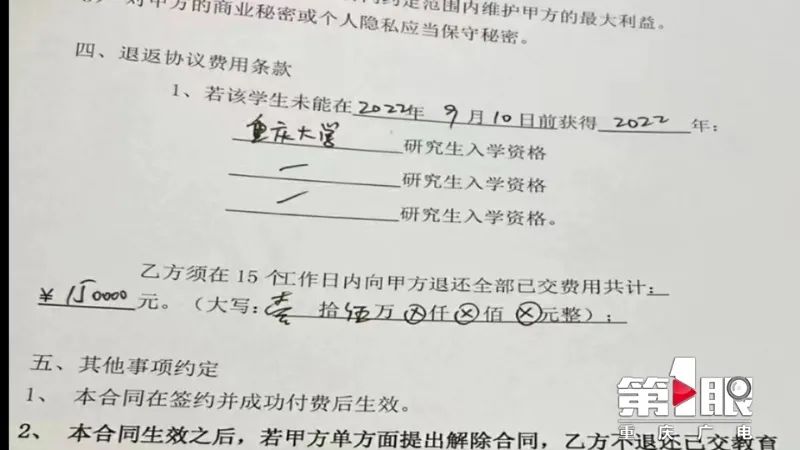 对甲方的商业秘密或个人隐私应当保守秘密。
定范围内维护甲方的最大利益。
四、退返协议费用条款
1、若该学生未能在2022年 9月10日前获得 2022 年：
重庆大学 研究生入学资格
研究生入学资格
研究生入学资格。
乙方须在 15 个工作日内向甲方退还全部已交费用共计：
¥ 150000 元。（大写：壹 拾 伍万 ⊗仟 ⊗佰 ⊗元整）；
五、其他事项约定
1、 本合同在签约并成功付费后生效。
2、 本合同生效之后，若甲方单方面提出解除合同，乙方不退还已交教育
第1眼
重庆广电